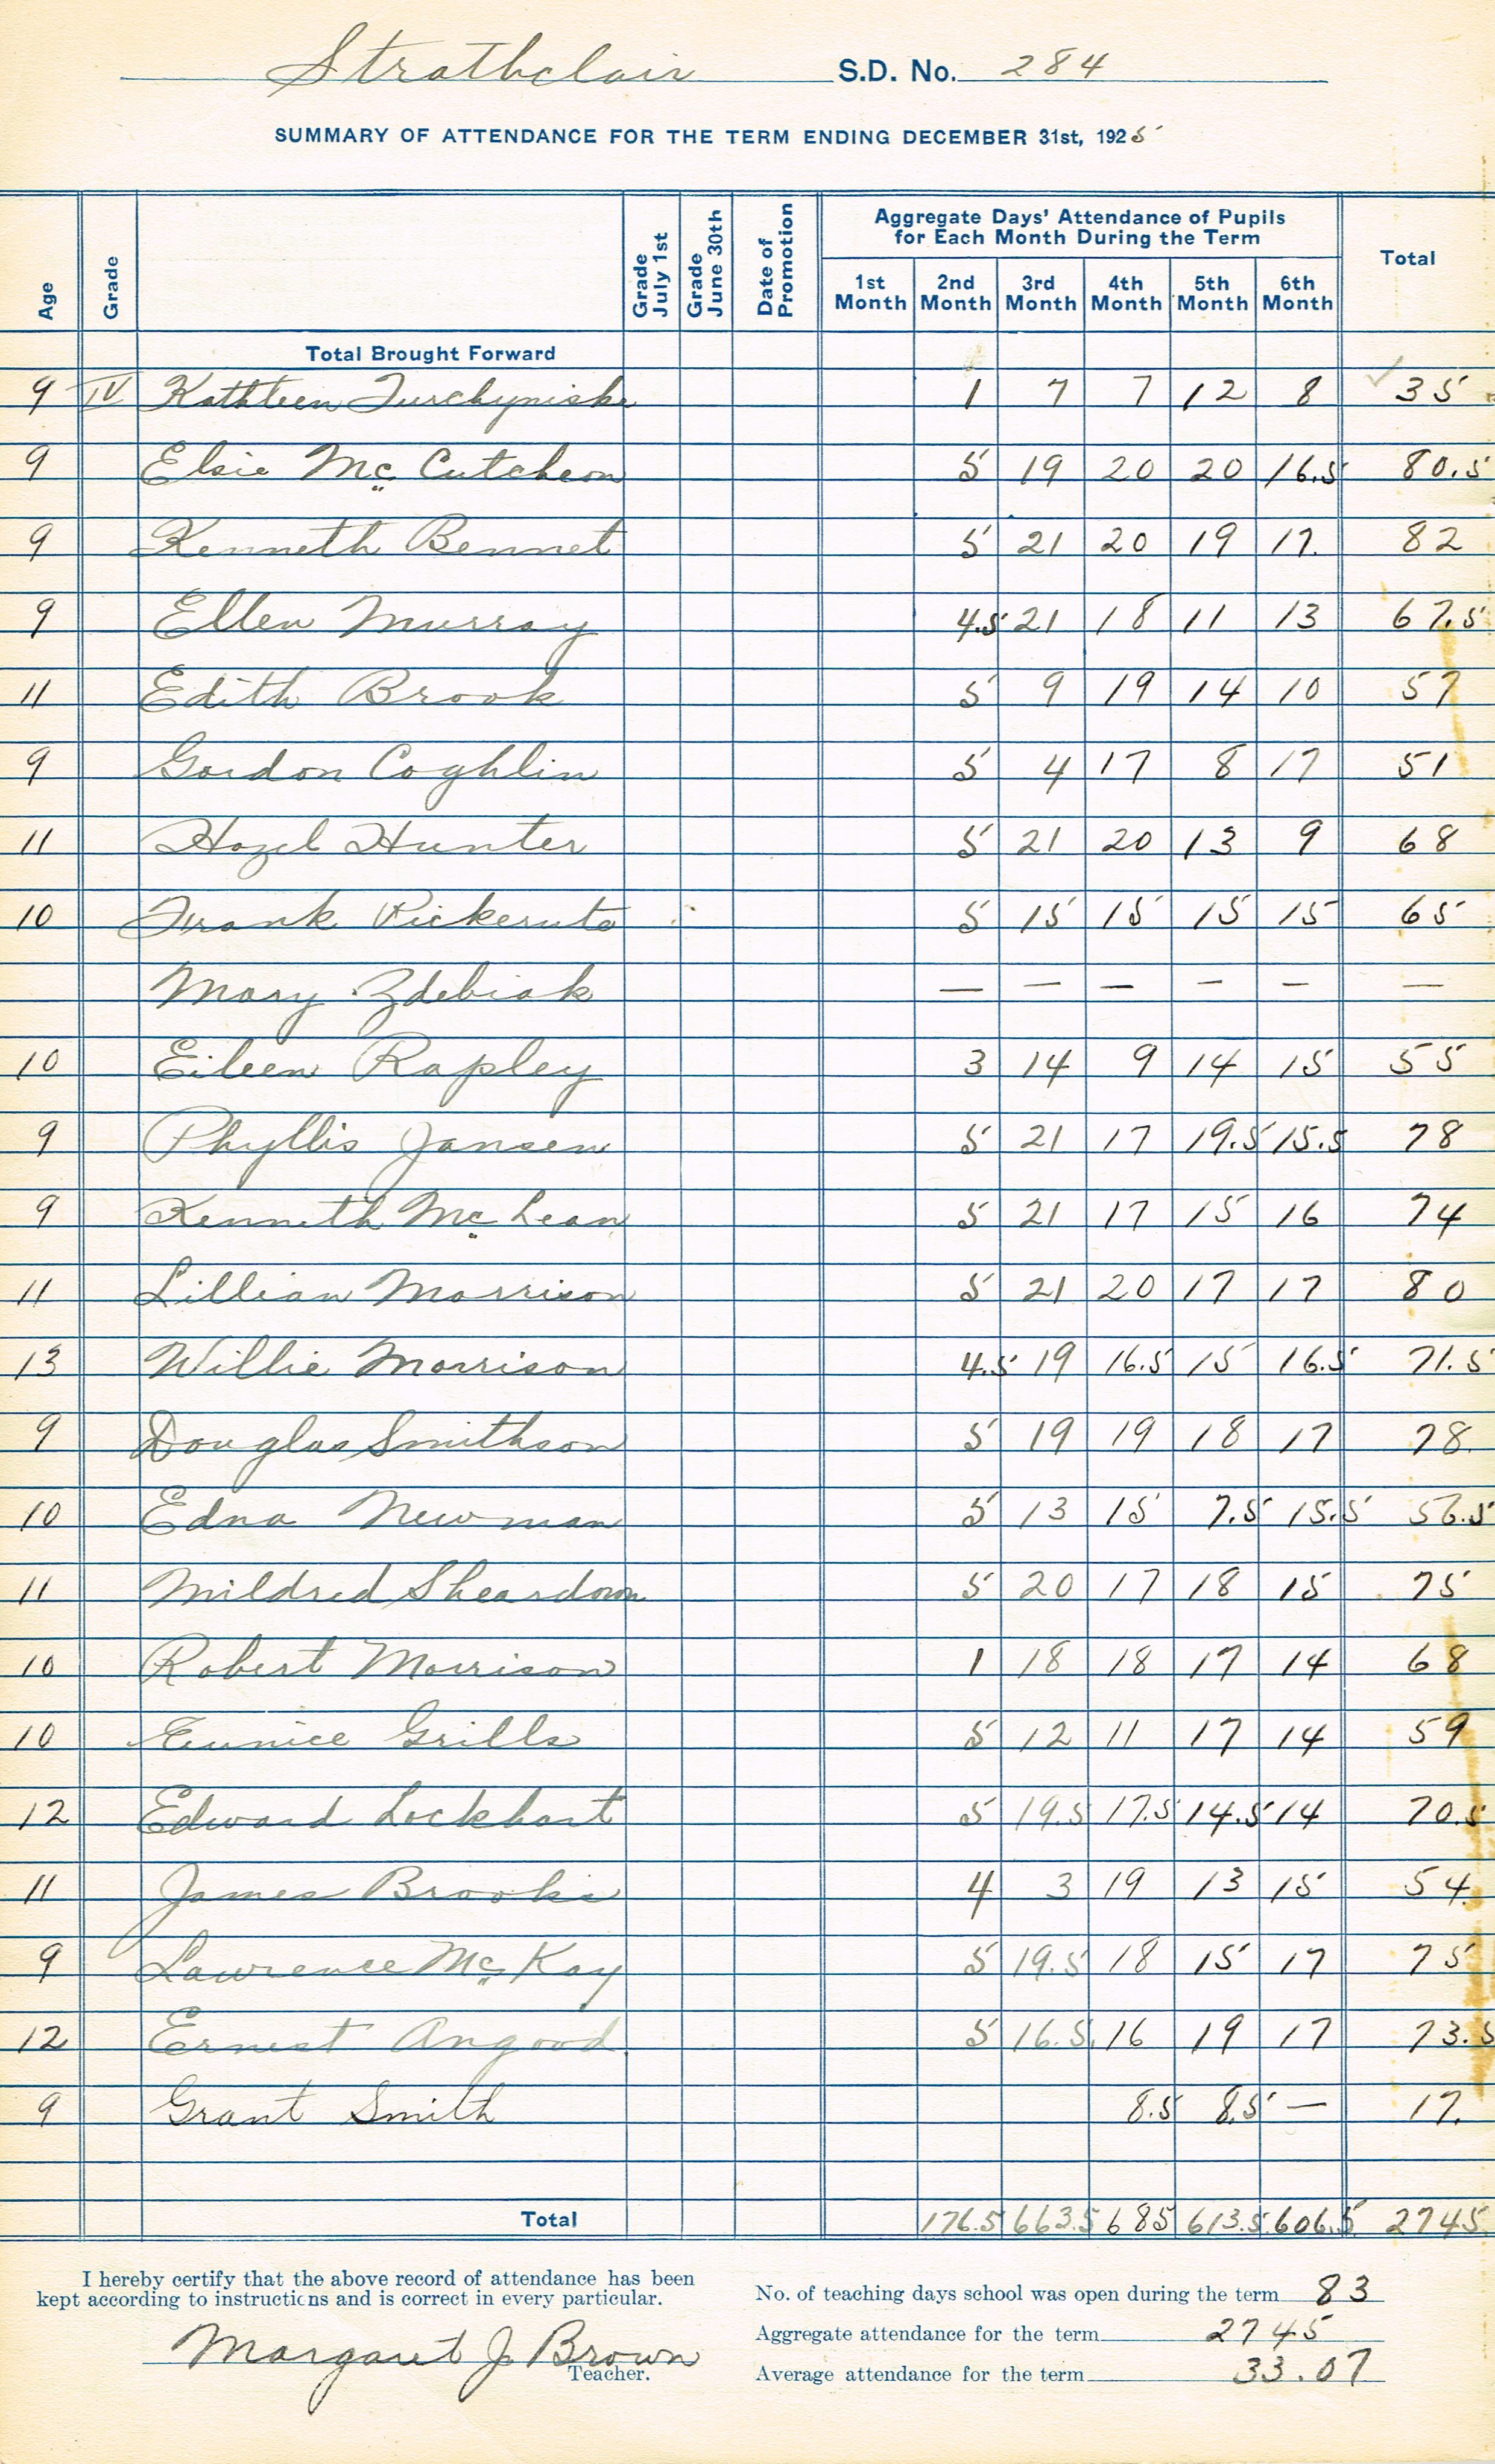 Strathclair S.D. No. 284
SUMMARY OF ATTENDANCE FOR THE TERM ENDING DECEMBER 31st, 1925
Age Grade Grade July 1st Grade June 30th Date of Promotion Aggregate Days' Attendance of Pupils for Each Month During the Term Total
1st Month 2nd Month 3rd Month 4th Month 5th Month 6th Month
Total Brought Forward
9 IV Kathleen 1 7 7 12 8 35
9 Elsie McCutcheon 5 19 20 20 16.5 80.5
9 Kenneth Bennet 5 21 20 19 17. 82
9 Ellen Murray 4.5 21 18 11 13 67.5
11 Edith Brook 5 9 19 14 10 57
9 Gordon Coghlin 5 4 17 8 17 51
11 Hazel Hunter 5 21 20 13 9 68
10 Frank 5 15 15 15 15 65
Mary Zdebiak — — — — — —
10 Eileen Rapley 3 14 9 14 15 55
9 Phyllis Jansen 5 21 17 19.5 15.5 78
9 Kenneth McLean 5 21 17 15 16 74
11 Lillian Morrison 5 21 20 17 17 80
13 Willie Morrison 4.5 19 16.5 15 16.5 71.5
9 Douglas Smithson 5 19 19 18 17 78.
10 Edna Newman 5 13 15 7.5 15.5 56.5
11 Mildred Sheardown 5 20 17 18 15 75
10 Robert Morrison 1 18 18 17 14 68
10 Eunice Grills 5 12 11 17 14 59
12 Edward Lockhart 5 19.5 17.5 14.5 14 70.5
11 James Brooks 4 3 19 13 15 54.
9 Lawrence McKay 5 19.5 18 15 17 75
12 Ernest Angood. 5 16.5 16 19 17 73.5
9 Grant Smith 8.5 8.5 — 17.
Total 176.5 663.5 685 613.5 606.5 2745.
I hereby certify that the above record of attendance has been
kept according to instructions and is correct in every particular.
Margaret J. Brown
Teacher.
No. of teaching days school was open during the term 83
Aggregate attendance for the term 2745
Average attendance for the term 33.07